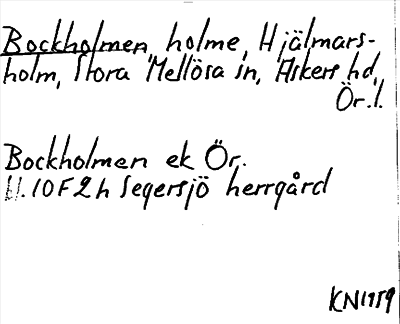 Bockholmen, holme, Hjälmars-
holm, Stora Mellösa sn, Askers hd,
Ör. l.
Bockholmen ek Ör.
bl. 10F2h Segersjö herrgård
KN1959